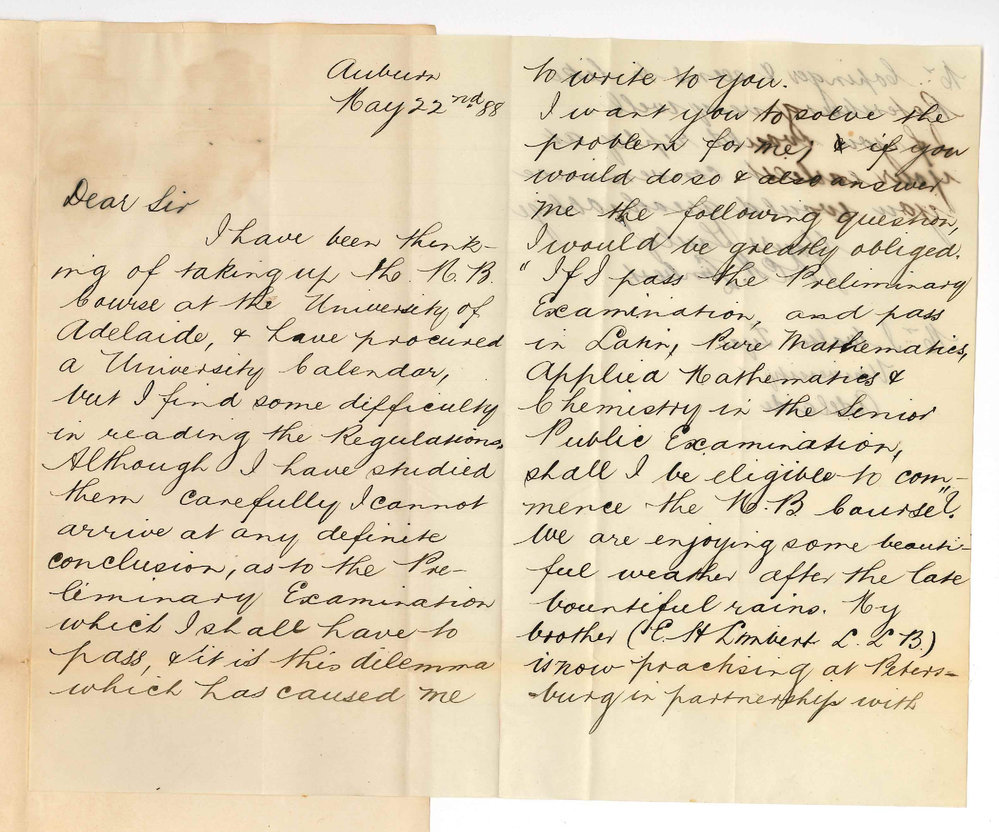 Auburn
May 22nd 88
Dear Sir
I have been think-
ing of taking up the M. B.
Course at the University of
Adelaide, & have procured
a University Calendar,
but I find some difficulty
in reading the Regulations.
Although I have studied
them carefully I cannot
arrive at any definite
conclusion, as to the Pre-
liminary Examination
which I shall have to
pass, & it is this dilemma
which has caused me
to write to you.
I want you to solve the
problem for me, & if you
would do so & also answer
me the following question,
I would be greatly obliged.
"If I pass the Preliminary
Examination, and pass
in Latin, Pure Mathematics,
Applied Mathematics &
Chemistry in the Senior
Public Examination,
shall I be eligible to com-
mence the M. B Course"?
We are enjoying some beauti-
ful weather after the late
bountiful rains. My
brother (E. H Lmbert L. L. B.)
is now practising at Peters-
burg in partnership with